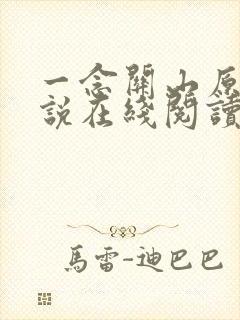 一念關山原
說在綫閱讀
馬雷-迪巴巴